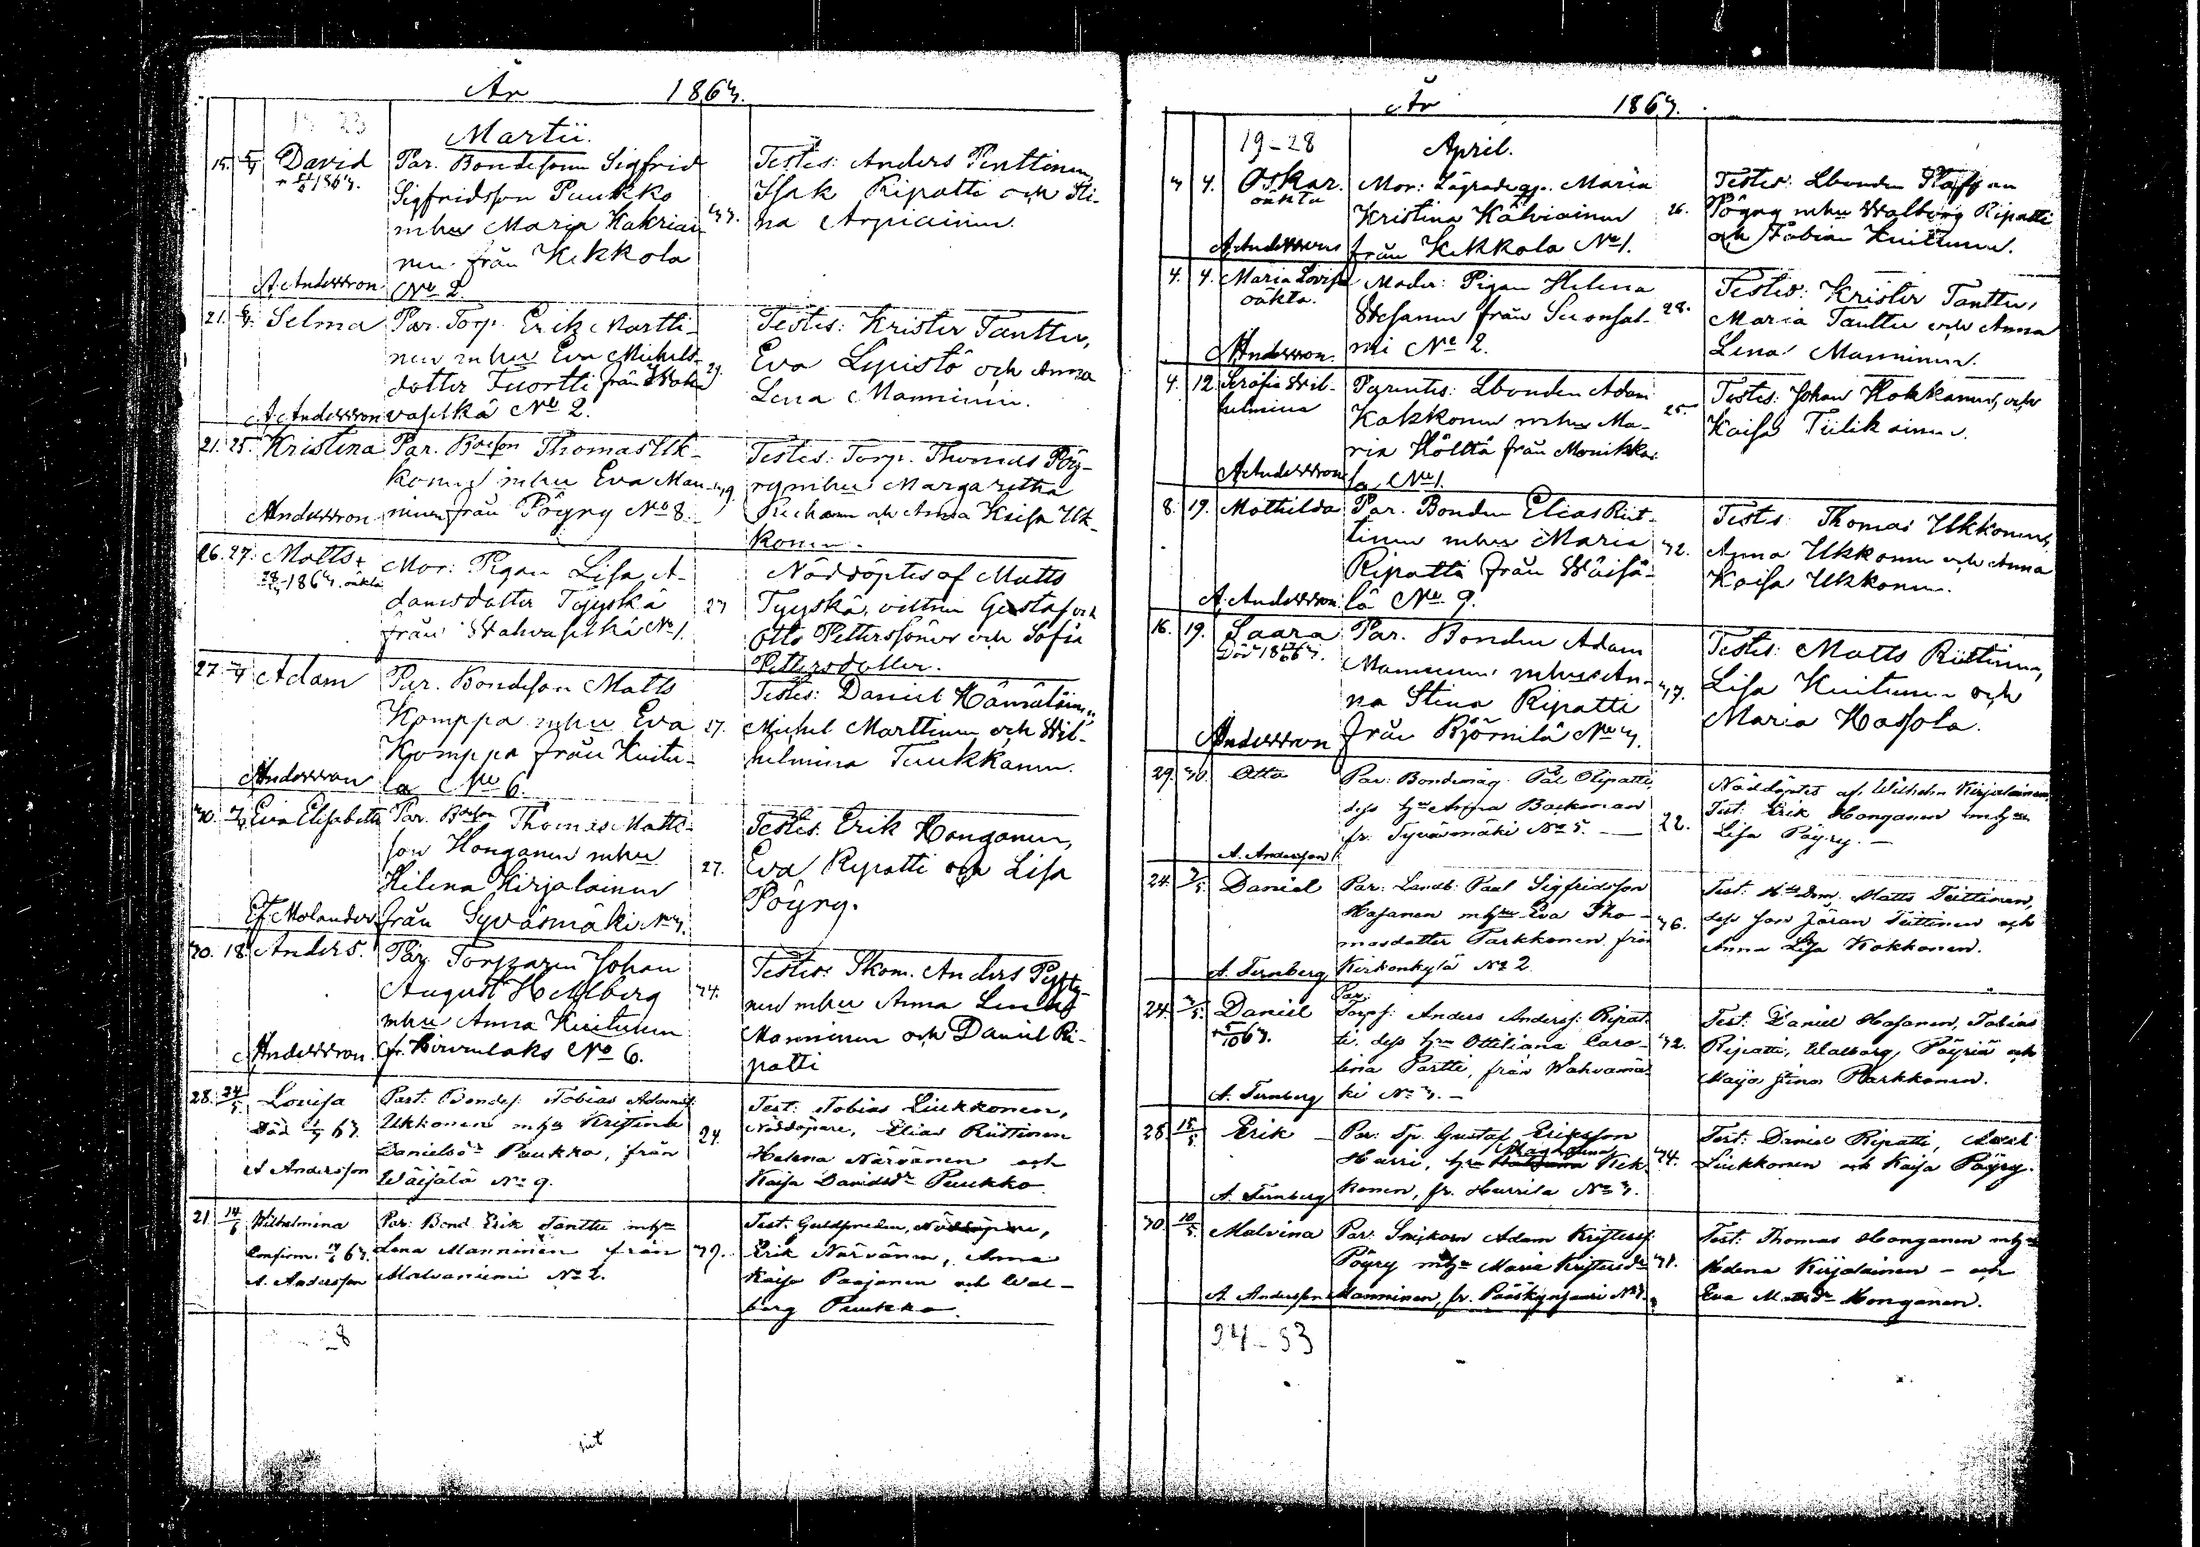 År 1863.
Martii.
15. David
Par. Bondesonen Sigfrid
Sigfridsson Puukko
mhu Maria Kakriai
nen från Kekkola
A. Andersson No 2.
33.
Testes: Anders Penttinen,
Isak Ripatti och Sti-
na Arpiainen.
21. Selma
Par. Torp. Erik Martti-
nen mhu Eva Michels-
dotter Tuortti från Wah
A. Andersson vaselkä No 2.
29.
Testes: Krister Tanttu,
Eva Lypistö och Anna
Lena Manninen.
21. 25. Kristina
Par. Boeson Thomas Uk-
konen mhu Eva Man-
Andersson ninen från Pöyry No 8.
39.
Testes: Torp. Thomas Pöy-
ry mhu Margaretha
och Anna Kaisa Uk-
konen.
26. 27. Matts
1863. oäkta
Mor: Pigan Lisa A-
damsdotter Tyyskä
från Wahvaselkä No 1.
27
Nöddöptes af Matts
Tyyskä, vittnen Gustaf och
Otto Pettersöner och Sofia
Pettersdotter.
27. Adam
Par. Bondeson Matts
Komppa mhu Eva
Komppa från Kuitu-
Andersson la No 6.
27.
Testes: Daniel Hämäläinen,
Michel Marttinen och Wil-
helmina Tuukkanen.
30. Eva Elisabeth
Par. Boeson Thomas Matts-
son Honganen mhu
Helena Kirjalainen
Ef. Molander från Syväsmäki No 3.
27.
Testes: Erik Honganen,
Eva Ripatti och Lisa
Pöyry.
30. 18. Anders.
Par. Torpparen Johan
August Hellberg
mhu Anna Kuitunen
Andersson fr. Hirvenlaks No 6.
34.
Testes: Skom. Anders Pyyty-
nen mhu Anna Lena
Manninen och Daniel Ri-
patti
28. 24/5 Lovisa
Död 63.
A Andersson
Par: Bondes: Tobias Adams:
Ukkonen mhu Kristina
Danielsdr Puukko, från
Wäisälä No 9.
24.
Test: Tobias Liukkonen,
Nöddöpare, Elias Riittinen
Helena Närvänen och
Kaisa Davidsdr Puukko.
21. 14/6 Wilhelmina
Confirm. 63.
A. Andersson
Par: Bond. Erik Tanttu mhu
Lena Manninen från
Malvaniemi No 2.
39.
Test: Guldsmeden, Nöddöpare,
Erik Närvänen, Anna
Kaisa Paajanen och Wal-
borg Puukko.
År 1863.
19-28
April.
3 4. Oskar.
oäkta
Mor: Lägradegp. Maria
Kristina Kälviäinen
A. Andersson från Kekkola No 1.
26.
Testes: Lbonden Staffan
Pöyry mhu Walborg Ripatti
och Tobias Kuitunen.
4. 4. Maria Lovisa
oäkta.
Moder: Pigan Helena
Wesanen från Suonsal-
Andersson mi No 2.
28.
Testes: Krister Tanttu,
Maria Tanttu och Anna
Lena Manninen.
4. 12. Serafia Wil-
helmina
Parentes: Lbonden Adam
Kokkonen mhu Ma-
ria Hölttä från Monikka
A. Andersson la No 1.
25.
Testes: Johan Kokkanen, och
Kaisa Tiilikainen.
8. 19. Mathilda
Par. Bonden Elias Riit-
tinen mhu Maria
Ripatti från Wäisä-
A. Andersson lä No 9.
32.
Testes: Thomas Ukkonen,
Anna Ukkonen och Anna
Kaisa Ukkonen.
16. 19. Saara
Par. Bonden Adam
Manninen mhu An-
na Stina Ripatti
Andersson från Björnilä No 3.
37.
Testes: Matts Riittinen,
Lisa Kuitunen och
Maria Hassola.
29. 30. Otto
Par: Bondemåg. Pål Ripatti,
dess hu Anna Backman
fr. Syväsmäki No 5.
A. Andersson
22.
Nöddöptes af. Wilhelm Kirjalainen,
Test. Erik Honganen mhu
Lisa Pöyry.
24. 3/5 Daniel
Par: Landb. Paul Sigfridsson
Hasanen mhu Eva Tho-
masdotter Parkkonen från
A. Ternberg Kirkonkylä No 2.
36.
Test. Matts Teittinen,
dess son Jöran Teittinen och
Anna Lisa Kokkonen.
24. 3/5 Daniel
63.
Par:
Torpf: Anders Anderss: Ripat-
ti, dess hu Ottiliana Caro-
lina Partti, från Wahvamä-
A. Ternberg ki No 3.
32.
Test: Daniel Hasanen, Tobias
Ripatti, Walborg Pöyriä och
Maija Stina Parkkonen.
28. 15/5 Erik
Par: Tp. Gustaf Eriksson
Magdalena
Harri, hu Kek-
A. Ternberg konen, fr. Hurrila No 3.
34.
Test: Daniel Ripatti, Axel
Liukkonen och Kaisa Pöyry.
30 10/5 Malvina
Par: Snickarn Adam Kristerss:
Pöyry mhu Maria Kristersdr
A. Andersson Manninen, fr. Pääskynsaari No 3.
31.
Test: Thomas Honganen mhu
Helena Kirjalainen - och
Eva Mattsdr Honganen.
24-53